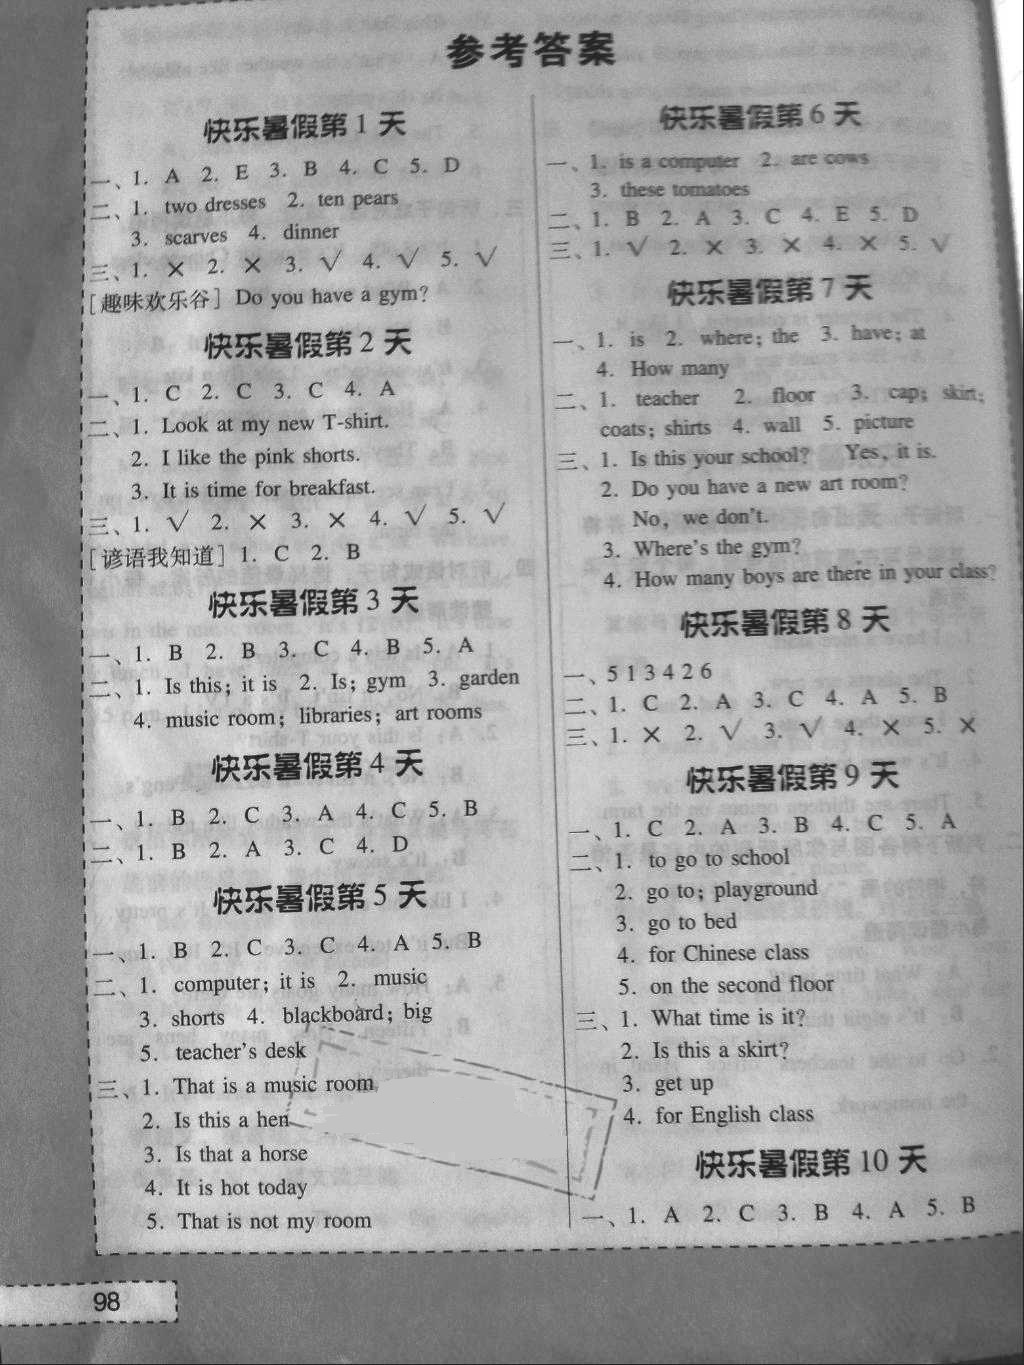 参考答案
快乐暑假第1天
一、1. A 2. E 3. B 4. C 5. D
二、1. two dresses 2. ten pears
3. scarves 4. dinner
三、1. × 2. × 3. √ 4. √ 5. √
[趣味欢乐谷] Do you have a gym?
快乐暑假第2天
一、1. C 2. C 3. C 4. A
二、1. Look at my new T-shirt.
2. I like the pink shorts.
3. It is time for breakfast.
三、1. √ 2. × 3. × 4. √ 5. √
[谚语我知道] 1. C 2. B
快乐暑假第3天
一、1. B 2. B 3. C 4. B 5. A
二、1. Is this; it is 2. Is; gym 3. garden
4. music room; libraries; art rooms
快乐暑假第4天
一、1. B 2. C 3. A 4. C 5. B
二、1. B 2. A 3. C 4. D
快乐暑假第5天
一、1. B 2. C 3. C 4. A 5. B
二、1. computer; it is 2. music
3. shorts 4. blackboard; big
5. teacher's desk
三、1. That is a music room
2. Is this a hen
3. Is that a horse
4. It is hot today
5. That is not my room
快乐暑假第6天
一、1. is a computer 2. are cows
3. these tomatoes
二、1. B 2. A 3. C 4. E 5. D
三、1. √ 2. × 3. × 4. × 5. √
快乐暑假第7天
一、1. is 2. where; the 3. have; at
4. How many
二、1. teacher 2. floor 3. cap; skirt;
coats; shirts 4. wall 5. picture
三、1. Is this your school? Yes, it is.
2. Do you have a new art room?
No, we don't.
3. Where's the gym?
4. How many boys are there in your class?
快乐暑假第8天
一、5 1 3 4 2 6
二、1. C 2. A 3. C 4. A 5. B
三、1. × 2. √ 3. √ 4. × 5. ×
快乐暑假第9天
一、1. C 2. A 3. B 4. C 5. A
二、1. to go to school
2. go to; playground
3. go to bed
4. for Chinese class
5. on the second floor
三、1. What time is it?
2. Is this a skirt?
3. get up
4. for English class
快乐暑假第10天
一、1. A 2. C 3. B 4. A 5. B
98